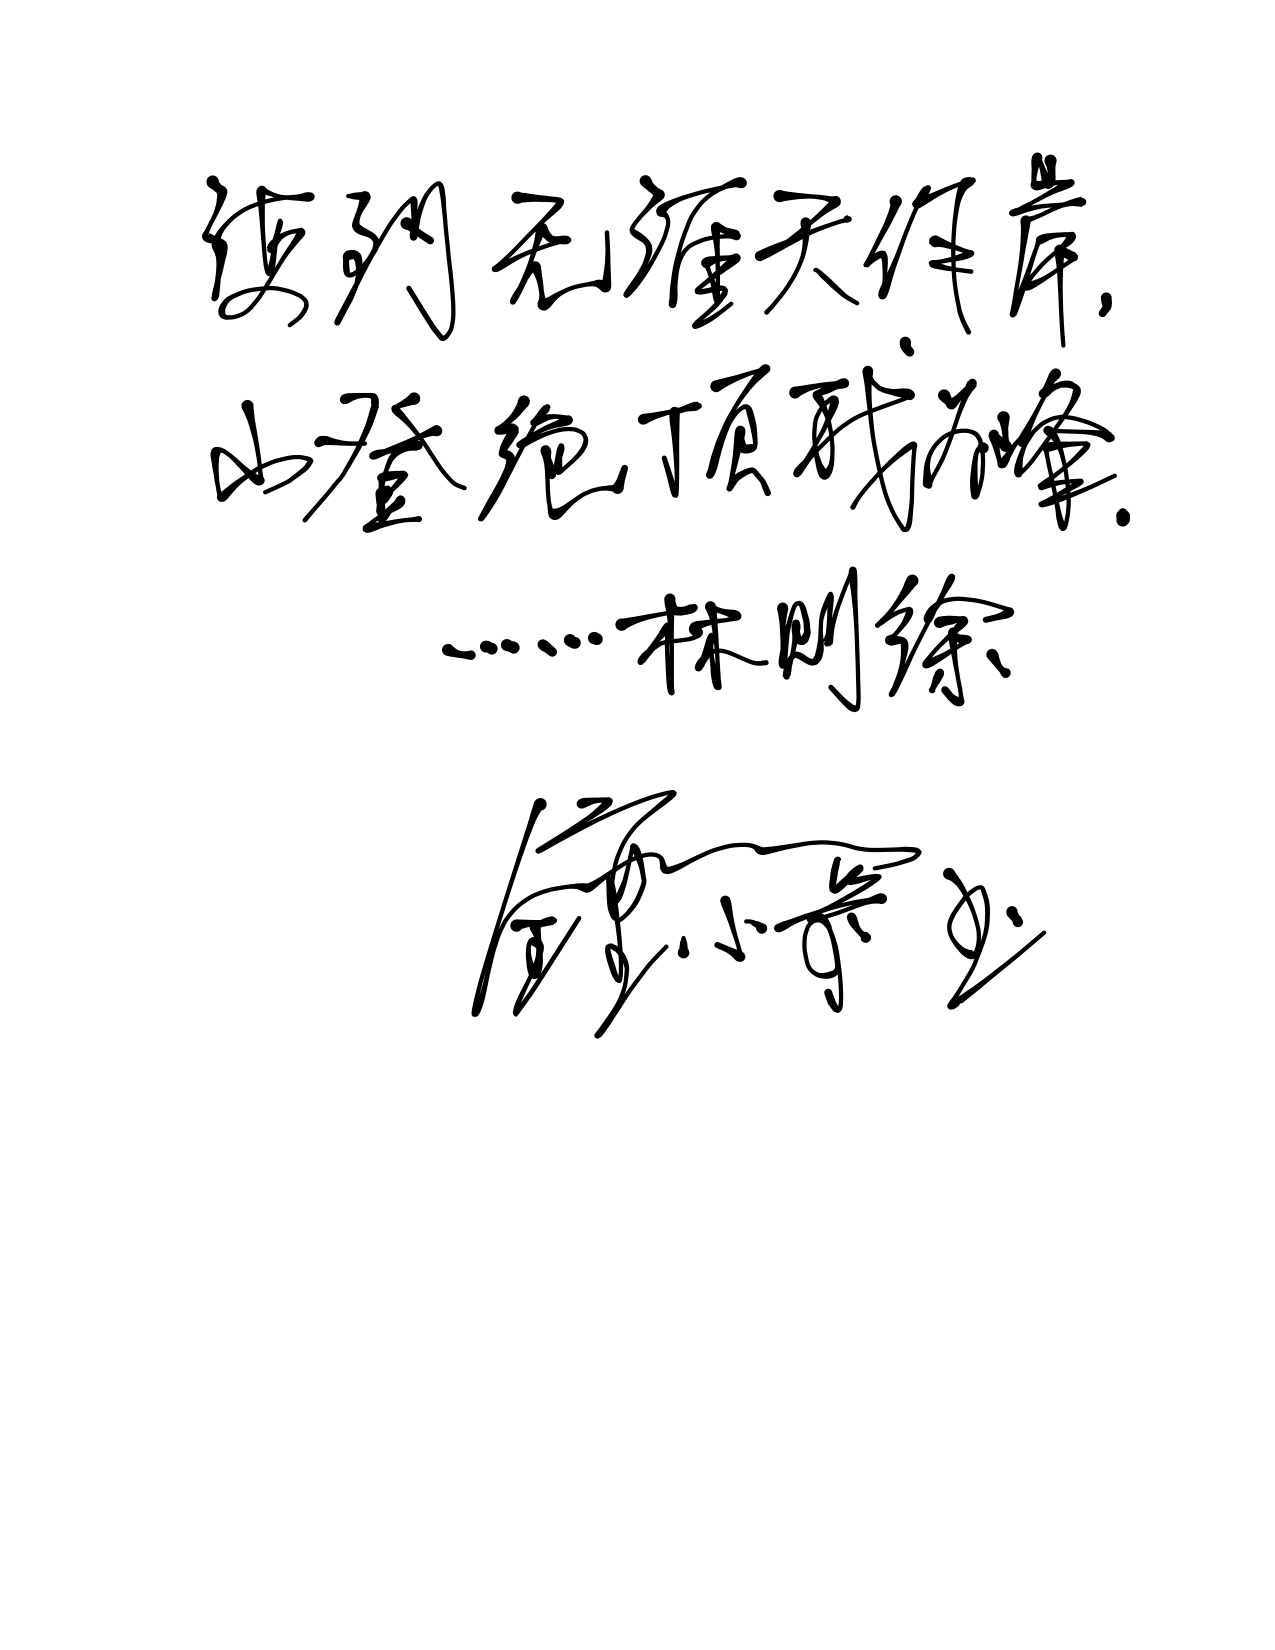 波到无涯天作岸,
山登绝顶我为峰.
……林则徐
小 书